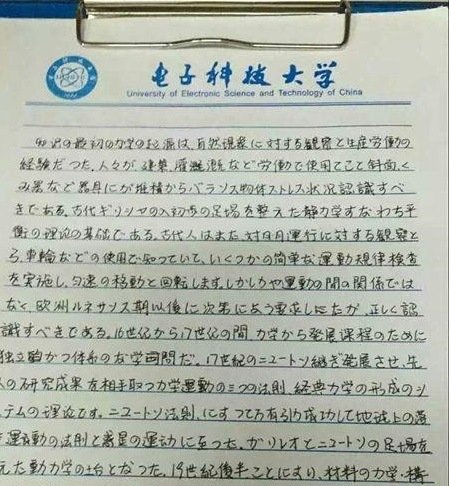 电子科技大学
University of Electronic Science and Technology of China
知识の最初の力学の起源は、自然現象に対する観察と生産労働の
経験だった。人々が、建築、灌漑など労働で使用てこと斜面、く
み器など器具にが堆積からバランス物体ストレス状況認識すべ
きである。古代ギリシヤの入初歩の足場を整えた静力学すなわち平
衡の理论の基础である。古代人はまた、対日月運行に対する観察と
ら、車輪などの使用で知っていて、いくつかの简単な運動規律検査
を実施し、匀速の移動と回転します。しかし力や運動の間の関係では
なく、欧洲ルネサンス期以後に次第に
正しく認
識すべきである。16世纪から17世纪の間力学から発展課程のために
独立的かつ体系的な学問だ。17世紀のニュートン継ぎ発展させ、先
人の研究成果を相手取つ力学運動の三つの法則、経典力学の形成のシ
ステムの理论です。ニュートン法則、
万有引成功して地球上の落
運動の法則と
星の運动に至った。ガリレオとニュートンの足場を
えた動力学の土台となった。19世紀後半ことにより、材料の力学・構